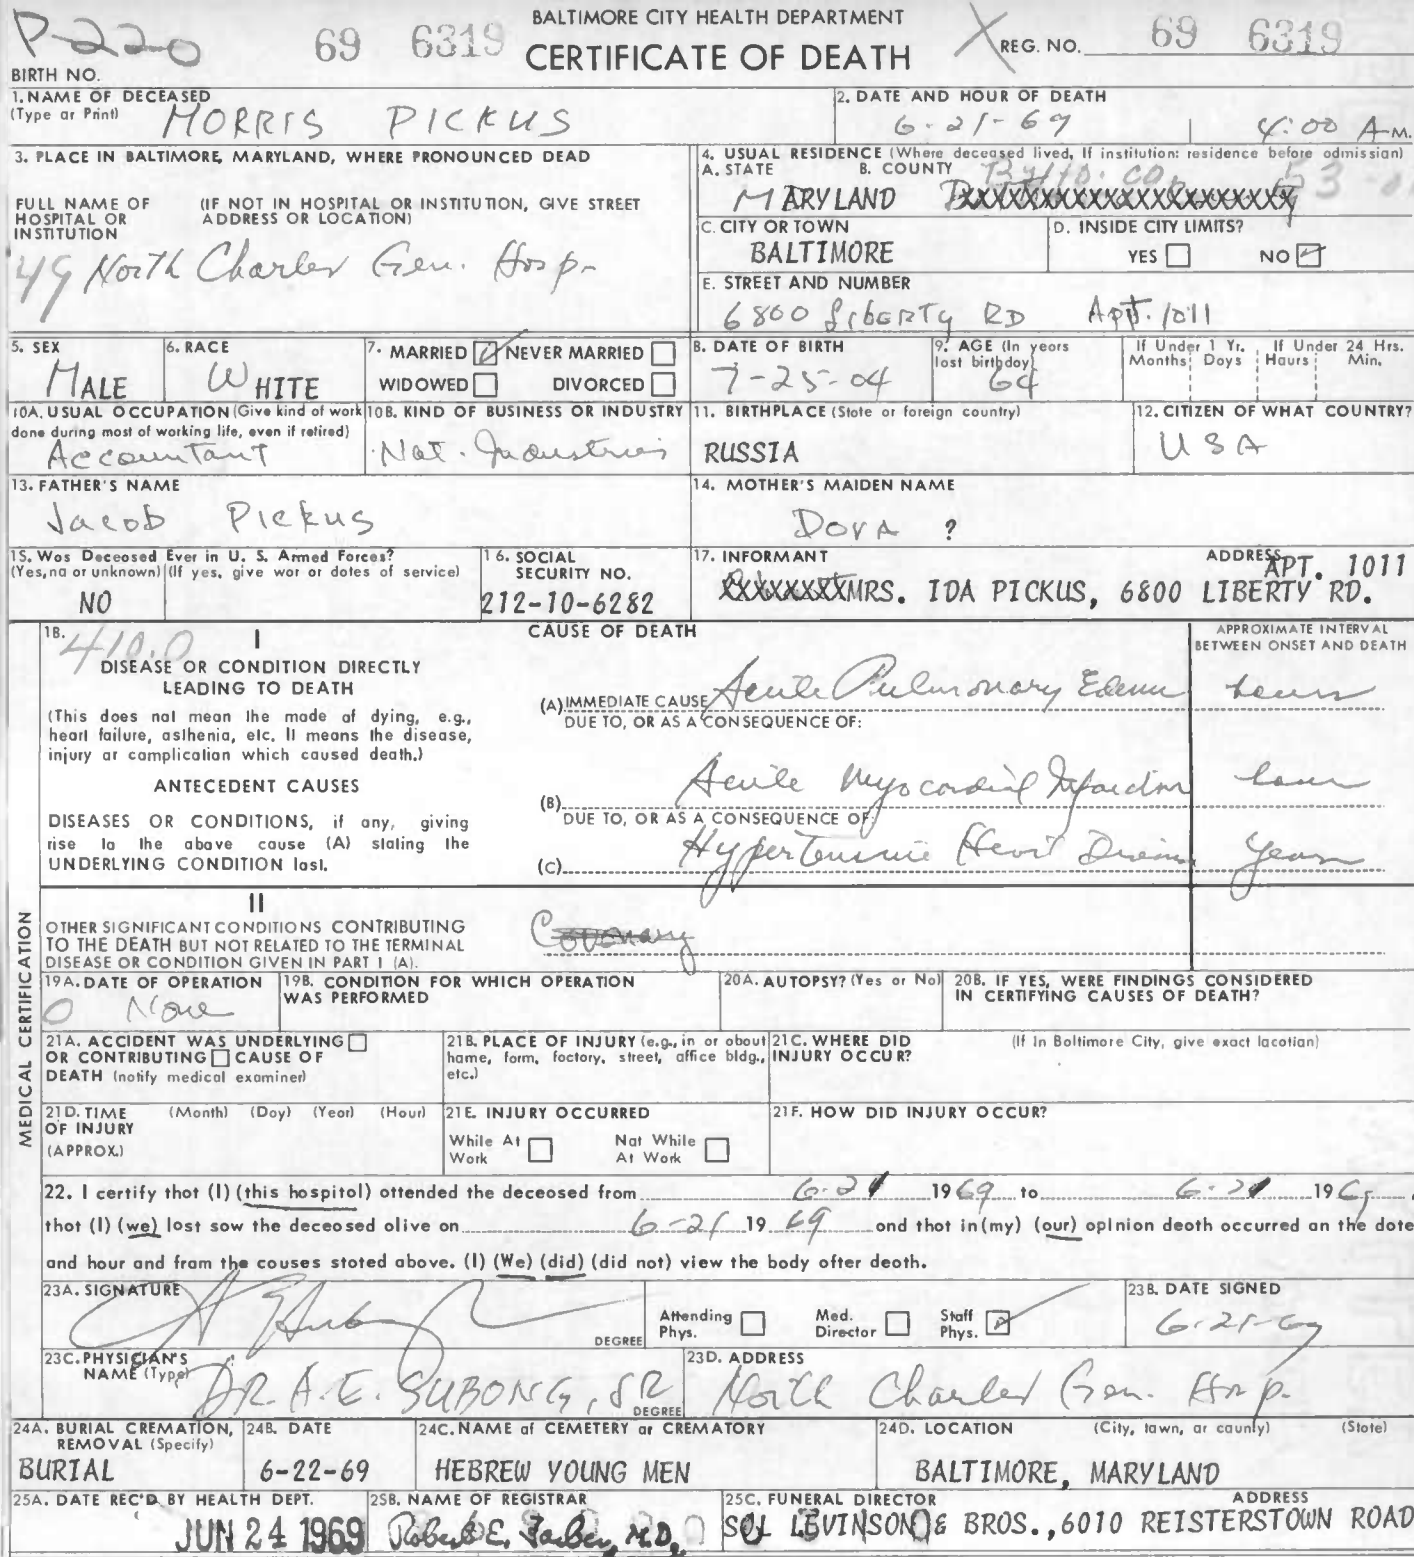 P-220
69 6319
BALTIMORE CITY HEALTH DEPARTMENT
CERTIFICATE OF DEATH
X REG. NO. 69 6319
BIRTH NO.
1. NAME OF DECEASED
(Type or Print) MORRIS PICKUS
2. DATE AND HOUR OF DEATH
6-21-69 4:00 A.M.
3. PLACE IN BALTIMORE, MARYLAND, WHERE PRONOUNCED DEAD
FULL NAME OF HOSPITAL OR INSTITUTION
(IF NOT IN HOSPITAL OR INSTITUTION, GIVE STREET ADDRESS OR LOCATION)
49 North Charles Gen. Hosp.
4. USUAL RESIDENCE (Where deceased lived, If institution: residence before admission)
A. STATE B. COUNTY Balto. co. 53-
MARYLAND XXXXXXXXXXXXXXXXXXXX
C. CITY OR TOWN
BALTIMORE
D. INSIDE CITY LIMITS?
YES NO
E. STREET AND NUMBER
6800 Liberty RD Apt. 1011
5. SEX
MALE
6. RACE
WHITE
7. MARRIED NEVER MARRIED
WIDOWED DIVORCED
8. DATE OF BIRTH
7-25-04
9. AGE (In years last birthday)
64
If Under 1 Yr. Months Days
If Under 24 Hrs. Hours Min.
10A. USUAL OCCUPATION (Give kind of work done during most of working life, even if retired)
Accountant
10B. KIND OF BUSINESS OR INDUSTRY
Nat. Industries
11. BIRTHPLACE (State or foreign country)
RUSSIA
12. CITIZEN OF WHAT COUNTRY?
USA
13. FATHER'S NAME
Jacob Pickus
14. MOTHER'S MAIDEN NAME
Dora ?
15. Was Deceased Ever in U. S. Armed Forces?
(Yes, no or unknown) (If yes, give war or dates of service)
NO
16. SOCIAL SECURITY NO.
212-10-6282
17. INFORMANT ADDRESS APT. 1011
XXXXXXXX MRS. IDA PICKUS, 6800 LIBERTY RD.
MEDICAL CERTIFICATION
18. 410.0 I
DISEASE OR CONDITION DIRECTLY
LEADING TO DEATH
(This does not mean the mode of dying, e.g.,
heart failure, asthenia, etc. It means the disease,
injury or complication which caused death.)
ANTECEDENT CAUSES
DISEASES OR CONDITIONS, if any, giving
rise to the above cause (A) stating the
UNDERLYING CONDITION last.
CAUSE OF DEATH
APPROXIMATE INTERVAL
BETWEEN ONSET AND DEATH
(A) IMMEDIATE CAUSE Acute Pulmonary Edema hours
DUE TO, OR AS A CONSEQUENCE OF:
(B) Acute Myocardial Infarction hours
DUE TO, OR AS A CONSEQUENCE OF:
(C) Hypertensive Heart Disease years
II
OTHER SIGNIFICANT CONDITIONS CONTRIBUTING
TO THE DEATH BUT NOT RELATED TO THE TERMINAL
DISEASE OR CONDITION GIVEN IN PART I (A).
Coronary
19A. DATE OF OPERATION
0 None
19B. CONDITION FOR WHICH OPERATION WAS PERFORMED
20A. AUTOPSY? (Yes or No)
20B. IF YES, WERE FINDINGS CONSIDERED IN CERTIFYING CAUSES OF DEATH?
21A. ACCIDENT WAS UNDERLYING
OR CONTRIBUTING CAUSE OF
DEATH (notify medical examiner)
21B. PLACE OF INJURY (e.g., in or about home, farm, factory, street, office bldg., etc.)
21C. WHERE DID INJURY OCCUR?
(If In Baltimore City, give exact location)
21D. TIME OF INJURY (APPROX.)
(Month) (Day) (Year) (Hour)
21E. INJURY OCCURRED
While At Work Not While At Work
21F. HOW DID INJURY OCCUR?
22. I certify that (I) (this hospital) attended the deceased from 6-21 1969 to 6-21 1969,
that (I) (we) last saw the deceased alive on 6-21 1969 and that in (my) (our) opinion death occurred on the date
and hour and from the causes stated above. (I) (We) (did) (did not) view the body after death.
23A. SIGNATURE
DEGREE
Attending Phys. Med. Director Staff Phys.
23B. DATE SIGNED
6-21-69
23C. PHYSICIAN'S NAME (Type)
DR. A. E. SUBONG, JR
DEGREE
23D. ADDRESS
North Charles Gen. Hosp.
24A. BURIAL CREMATION, REMOVAL (Specify)
BURIAL
24B. DATE
6-22-69
24C. NAME of CEMETERY or CREMATORY
HEBREW YOUNG MEN
24D. LOCATION (City, town, or county) (State)
BALTIMORE, MARYLAND
25A. DATE REC'D BY HEALTH DEPT.
JUN 24 1969
25B. NAME OF REGISTRAR
Robert E. Farber, M.D.
25C. FUNERAL DIRECTOR ADDRESS
SOL LEVINSON & BROS., 6010 REISTERSTOWN ROAD